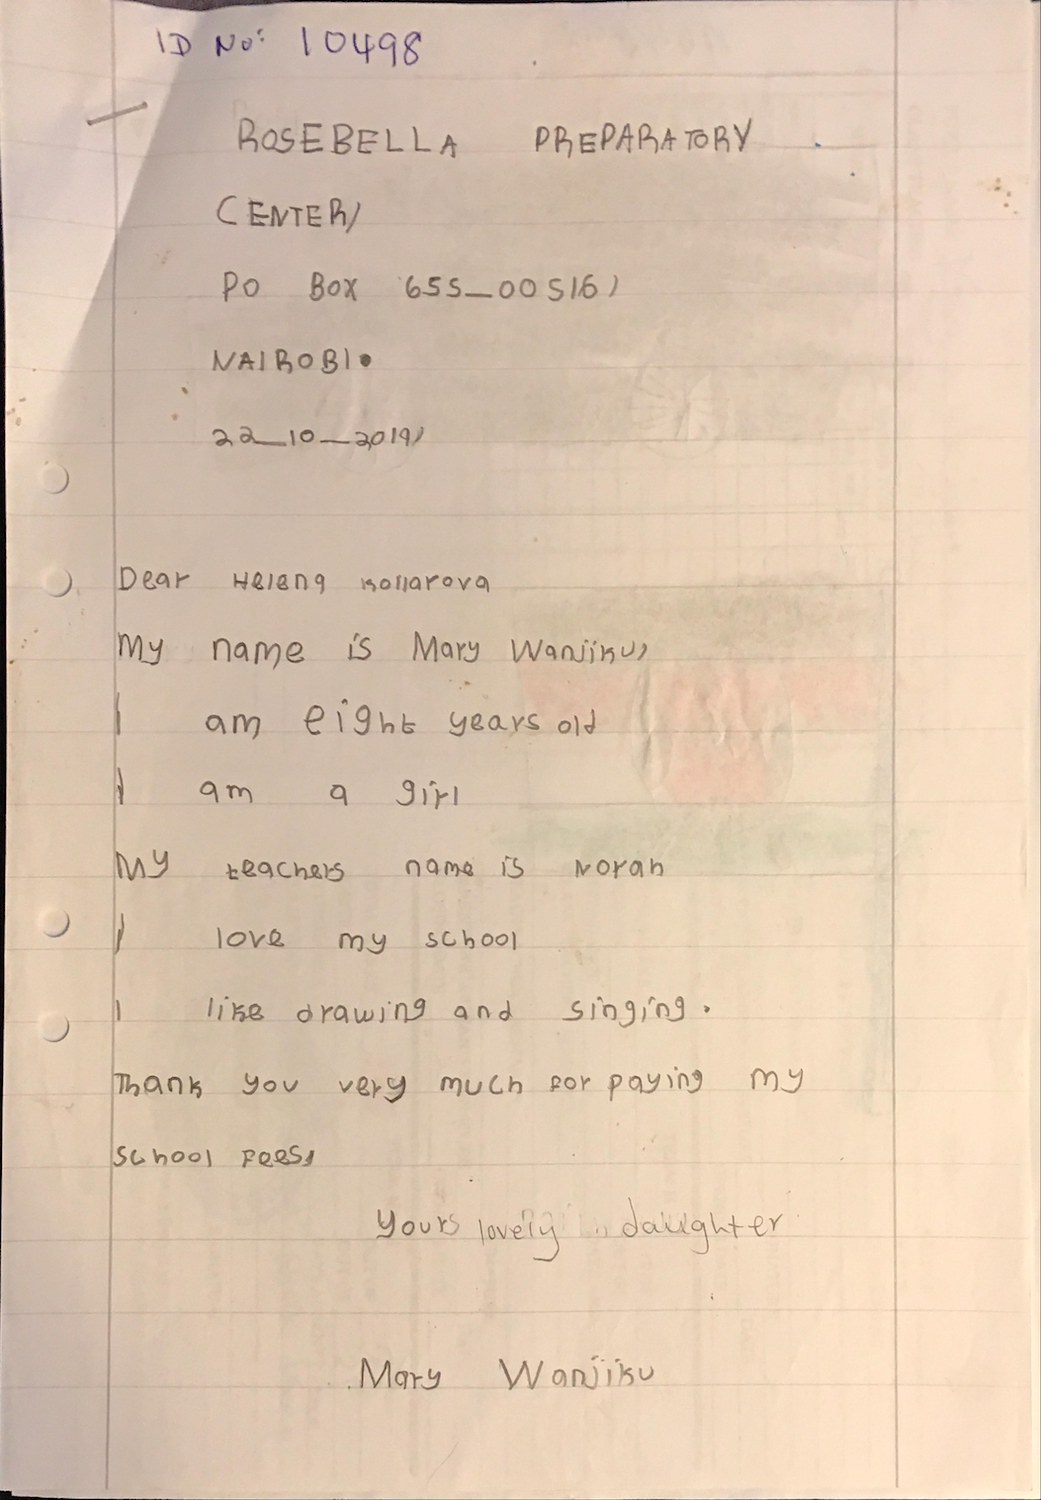 ID No: 10498
ROSEBELLA PREPARATORY
CENTER,
PO BOX 655_00516,
NAIROBI.
22_10_2019,
Dear Helena Kollarova
My name is Mary Wanjiku,
I am eight years old
I am a girl
My teachers name is Norah
I love my school
I like drawing and singing.
Thank you very much for paying my
school fees,
Yours lovely daughter
Mary Wanjiku